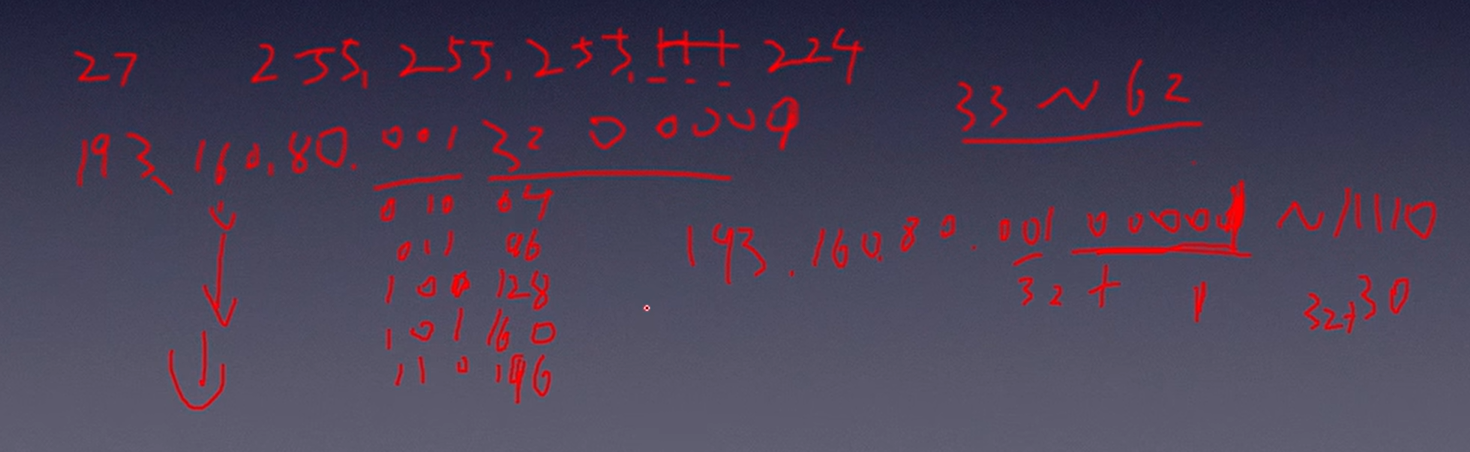 27 255.255.255.111 224
193.160.80.001 32 0 0000
33 ~ 62
010 64
011 96
100 128
101 160
110 196
193.160.80.001 00001 ~ 11110
32 + 1 32+30